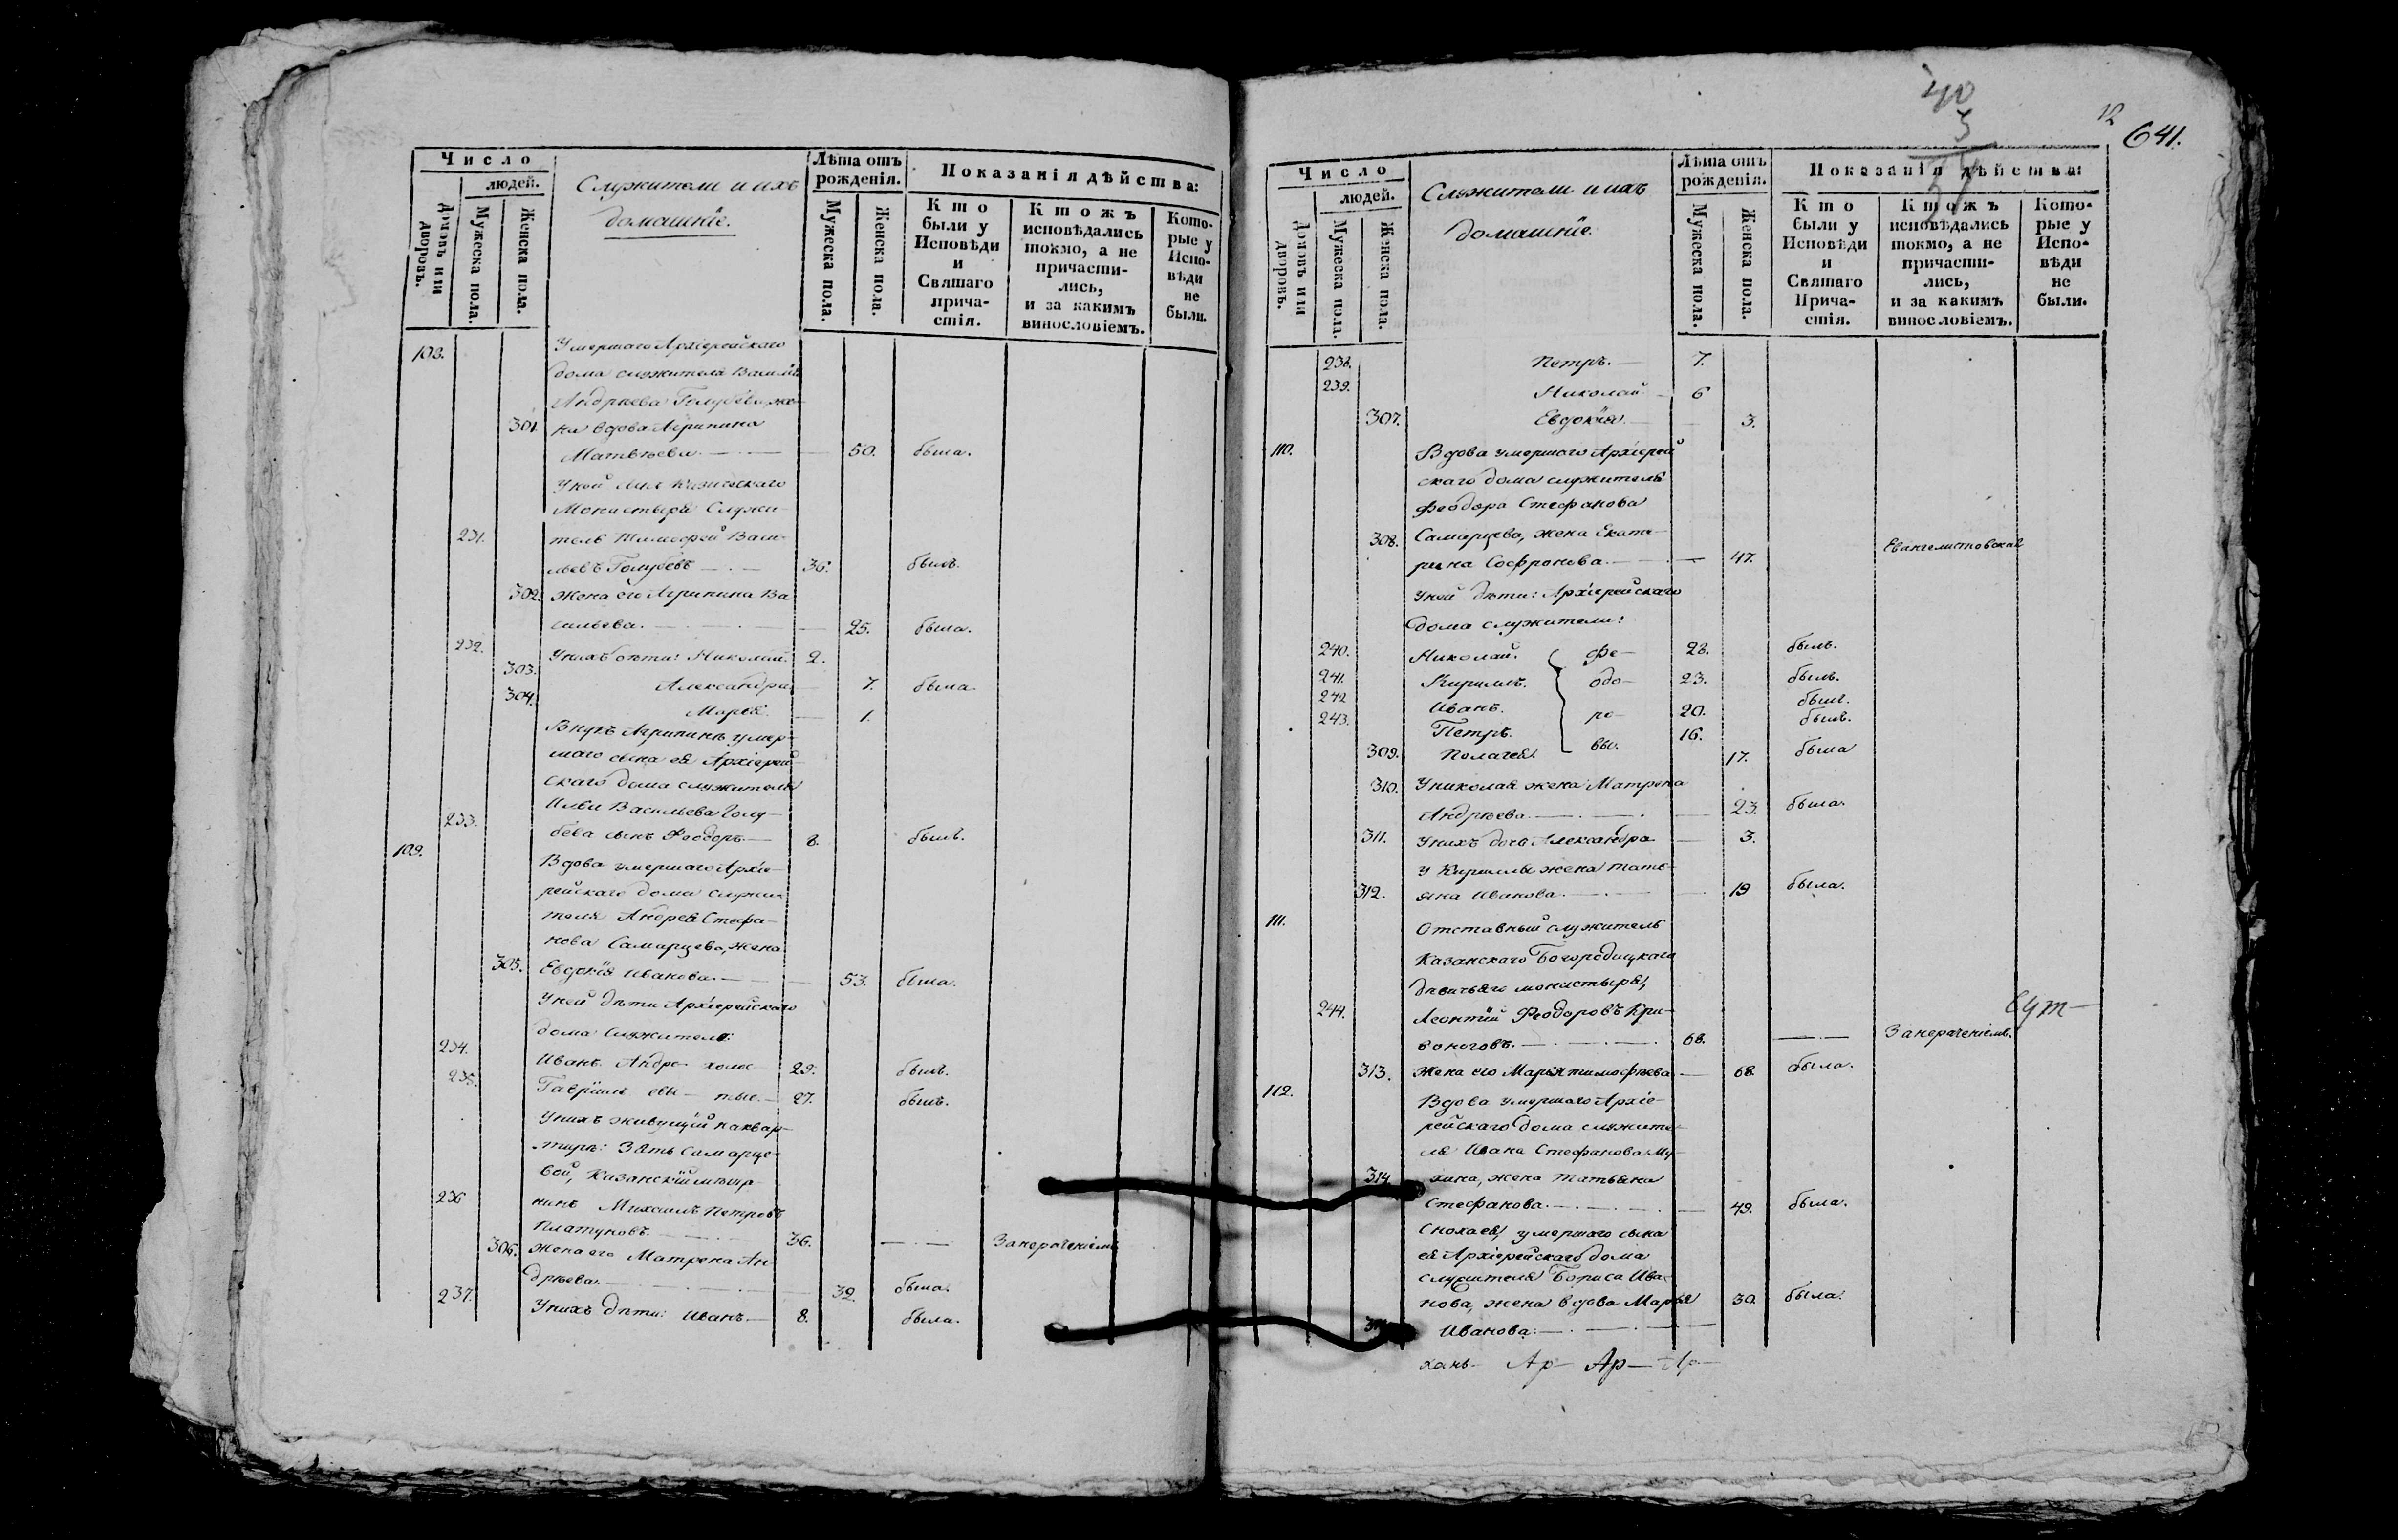 Число
людей.
Домовъ или дворовъ.
Мужеска пола.
Женска пола.
Служители и ихъ
домашніе.
Лѣта отъ
рожденія.
Мужеска пола.
Женска пола.
Показанія дѣйства:
Кто
были у
Исповѣди
и
Святаго
прича-
стія.
Ктожъ
исповѣдались
токмо, а не
причасти-
лись,
и за какимъ
винословіемъ.
Кото-
рые у
Испо-
вѣди
не
были.
108. Умершаго Архіерейскаго
дома служителя Василія
Андреева Голубева же-
301. на вдова Агрипина
Матвѣева. — 50. была.
У ней
Монастыря Служи-
231. тель Тимофей Васи-
льевъ Голубевъ — 36. былъ.
302. Жена его Агрипина Ва
сильева. — 25. была.
232. У нихъ дѣти: Николай. 2.
303. Александра — 7. была.
304. Марія. — 1.
Внукъ Агрипинъ умер-
шаго сына ея Архіерей-
скаго дома служителя
Ильи Васильева Голу-
233. бева сынъ Феодоръ. — 8. былъ.
109. Вдова умершаго Архіе-
рейскаго дома служи-
теля Андрея Стефа-
нова Самарцева, жена
305. Евдокія Иванова. — 53. была.
У ней дѣти Архіерейскаго
дома служители:
234. Иванъ. Андре- холос- 29. былъ.
235. Гавріилъ евы — тые. — 27. былъ.
У нихъ живущій на квар-
тирѣ: Зять Самарце-
вой, Казанскій мѣща-
236 нинъ Михаилъ Петровъ
Платуновъ. — 36. — Занераченіемъ
306. Жена его Матрена Ан
дреева. — 32. была.
237. У нихъ дѣти: Иванъ. — 8. была.
40
3
37
12
641.
Число
людей.
Домовъ или дворовъ.
Мужеска пола.
Женска пола.
Служители и ихъ
домашніе.
Лѣта отъ
рожденія.
Мужеска пола.
Женска пола.
Показанія дѣйства:
Кто
были у
Исповѣди
и
Святаго
Прича-
стія.
Ктожъ
исповѣдались
токмо, а не
причасти-
лись,
и за какимъ
винословіемъ.
Кото-
рые у
Испо-
вѣди
не
были.
238. Петръ. — 7.
239. Николай. — 6
307. Евдокія. — 3.
110. Вдова умершаго Архіерей
скаго дома служителя
Феодора Стефанова
308. Самарцева, жена Екате-
рина Софронова. — 47. Евангелистовской
У ней дѣти: Архіерейскаго
дома служители:
240. Николай. Фе- 28. былъ.
241. Кирилъ. одо- 23. былъ.
242 Иванъ. ро- 20. былъ.
243. Петръ. 16. былъ.
309. Полагея. вы. 17. была
310. У Николая жена Матрена
Андреева. — 23. была.
311. У нихъ дочь Александра — 3.
У Кириллы жена Тать-
312. яна Иванова. — 19 была.
111. Отставный служитель
Казанскаго Богородицкаго
дѣвичьяго монастыря,
244. Леонтій Феодоровъ Кри-
воноговъ. — 68. — Занераченіемъ.
313. Жена его Марья Тимофѣева — 68 была.
112. Вдова умершаго Архіе-
рейскаго дома служите-
ля Ивана Стефанова Му-
314 хина, жена Татьяна
Стефанова. — 49. была.
Сноха ея, умершаго сына
ея Архіерейскаго дома
служителя Бориса Ива-
нова, жена вдова Марья 30. была.
Иванова: —
хань- Ар- Ар- Ар-